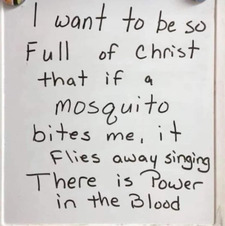 I want to be so
Full of Christ
that if a
mosquito
bites me, it
Flies away singing
There is Power
in the Blood